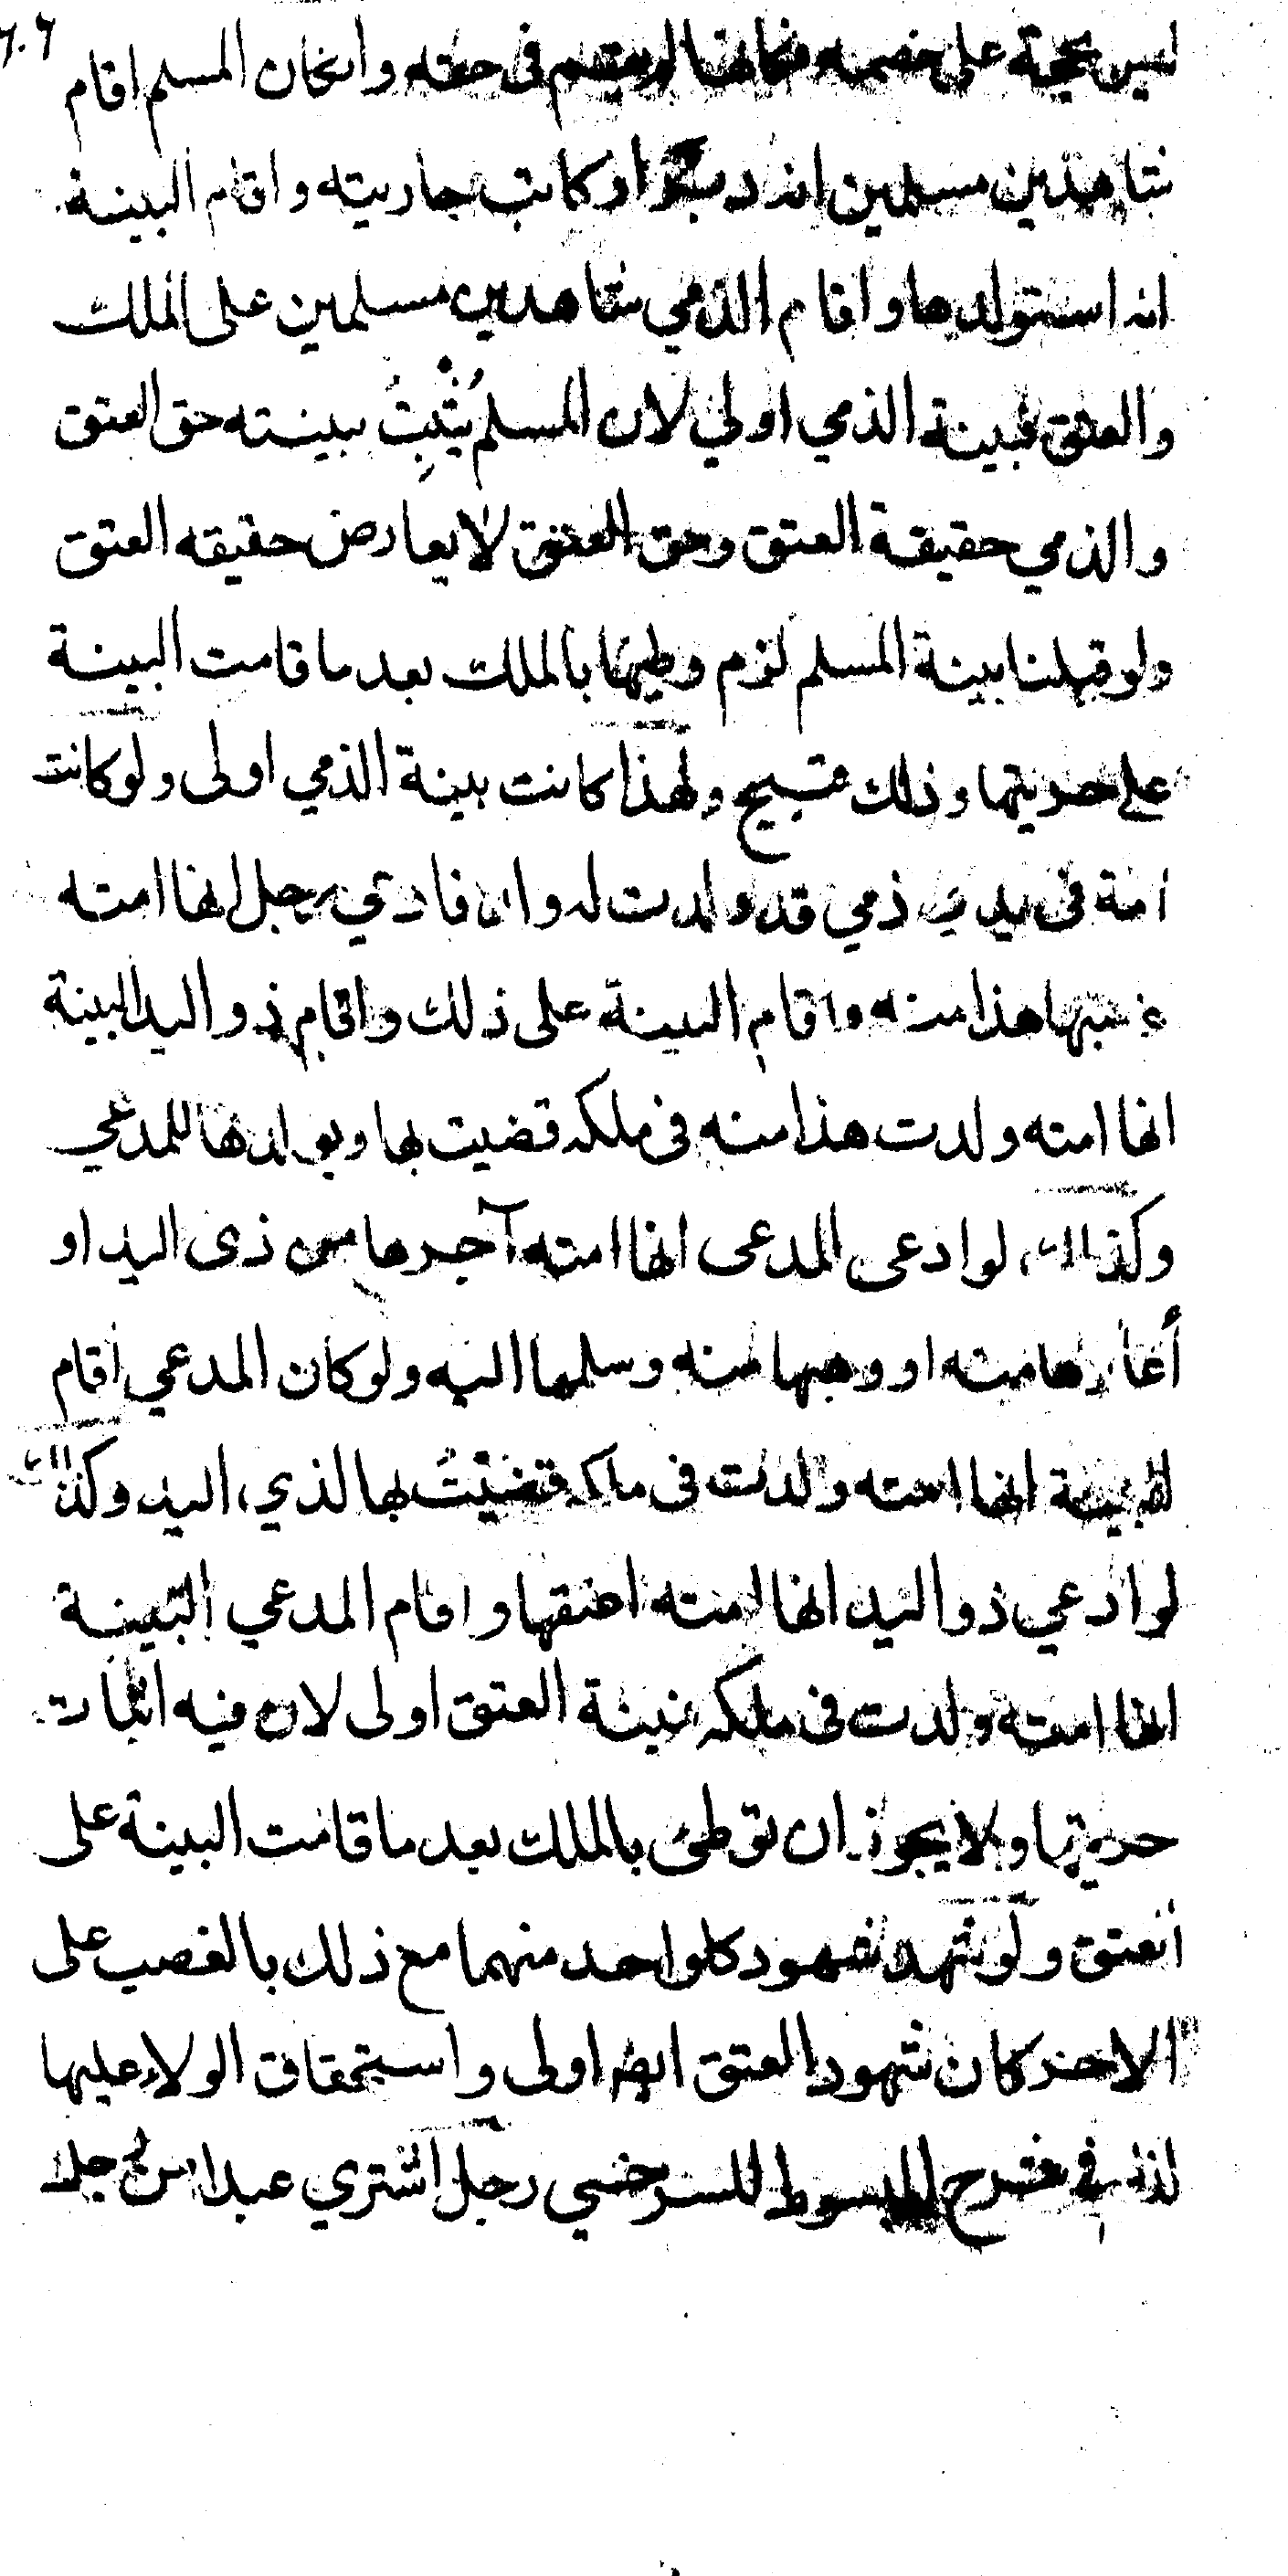 ٦٠٦
ليس بحجة على خصمه فكانها لم تقم فى حقه وانكان المسلم اقام
شاهدين مسلمين انه دبر او كانت جاريته واقام البينة
انه استولدها واقام الذمي شاهدين مسلمين على الملك
والعتق فبينة الذي اولي لان المسلم يُثْبِتُ ببينته حق العتق
والذمي حقيقة العتق وحق العتق لا يعارض حقيقه العتق
ولو قبلنا بينة المسلم لزم وطيها بالملك بعد ما قامت البينة
على حريتها وذلك قبيح ولهذا كانت بينة الذمي اولى ولو كانت
امة فى يدي ذمي قد ولدت له وادي رجل انها امته
غصبها هذا منه واقام البينة على ذلك واقام ذو اليد البينة
انها امته ولدت هذا منه فى ملكه قضيت بها وبولدها للمدعي
وكذلك لو ادعى المدعى انها امته آجرها من ذى اليد او
أعارها منه او وهبها منه وسلمها اليه ولو كان المدعي اقام
البينة انها امته ولدت فى ملكه قضيْتُ بها لذي اليد وكذلك
لو ادعي ذو اليد انها امته اعتقها واقام المدعي البينة
انها امته ولدت فى ملكه بينة العتق اولى لان فيه اثبات
حريتها ولا يجوز ان توطئ بالملك بعد ما قامت البينة على
العتق ولو شهد شهود كلواحد منهما مع ذلك بالغصب على
الاخر كان شهود العتق ايضا اولى واستحقاق الولاء عليها
كذا في شرح المبسوط للسرخسي رجل اشتري عبدا من رجل